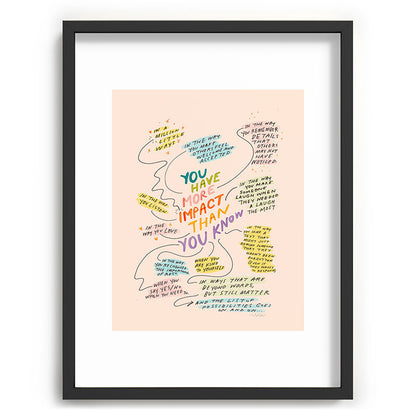 IN A
MILLION
LITTLE
WAYS
IN THE WAY
YOU MAKE
OTHERS FEEL
WELCOME AND
ACCEPTED
IN THE WAY
YOU REMEMBER
DETAILS
THAT
OTHERS
MAY NOT
HAVE
NOTICED
YOU
HAVE
MORE
IMPACT
THAN
YOU KNOW
IN THE WAY
YOU LISTEN
IN THE WAY
YOU MAKE
SOMEONE
LAUGH WHEN
THEY NEEDED
A LAUGH
THE MOST
IN THE
WAY YOU LOVE
IN THE WAY
THE IMPORTANCE
OF REST
WHEN YOU
ARE KIND
TO YOURSELF
WHEN YOU
SAY YES/NO
WHEN YOU NEED TO
IN WAYS THAT ARE
BEYOND WORDS,
BUT STILL MATTER
AND THE LIST OF
POSSIBILITIES GOES
ON AND ON...